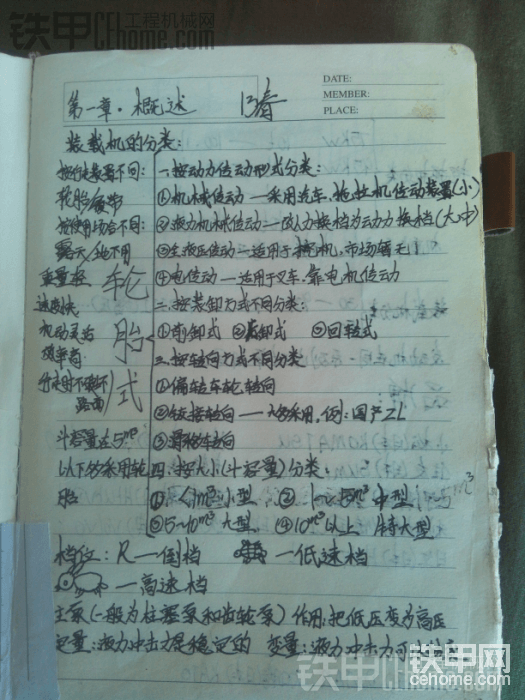 铁甲 工程机械网
cehome.com
DATE:
MEMBER:
PLACE:
第一章·概述 13春
装载机的分类:
按行走装置不同:
轮胎/履带
按使用场合不同:
露天/地下用
重量轻
速度快
机动灵活
效率高
行走时不破坏
路面
斗容量在5m³
以下多采用轮
胎
轮胎式
一·按动力传动形式分类:
①机械传动—采用汽车、拖拉机传动装置(小)
②液力机械传动—以人力换档为动力换档(大中)
③全液压传动—适用于挖机,市场暂无
④电传动—适用于叉车,靠电机传动
二·按装卸方式不同分类:
①前卸式 ②后卸式 ③回转式
三·按转向方式不同分类
①偏转车轮转向
②铰接转向——多采用,例:国产ZL
③滑移转向
四:按大小(斗容量)分类:
①<1m³小型 ②1~5m³中型
③5~10m³大型 ④10m³以上 特大型
m³
档位:R—倒档 —低速档
—高速档
主泵(一般为柱塞泵和齿轮泵)作用:把低压变为高压
定量:液力冲击力是稳定的 变量:液力冲击力可
铁甲网
cehome.com